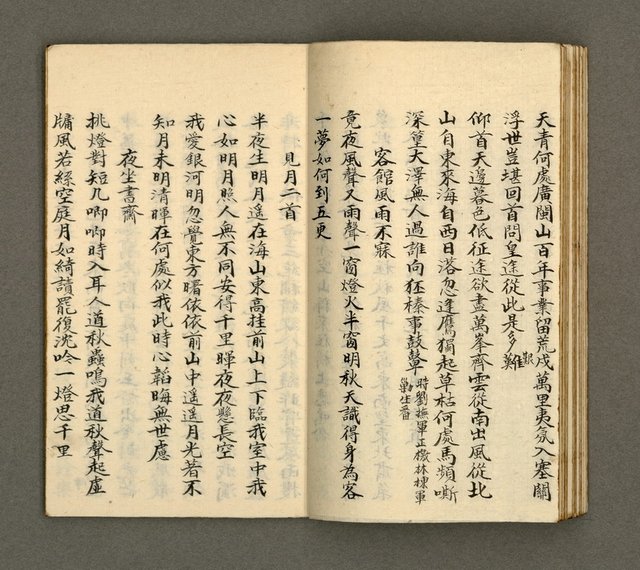 天青何處廣閩山百年事業留荒戍萬里夷氛入塞關
浮世豈堪回首問皇途從此是多艱難
仰首天邊暮色低征途欲盡萬峯齊雲從南出風從北
山自東來海自西日落忽逢鷹獨起草枯何處馬頻嘶
深篁大澤無人過誰向狂榛事鼓鼙時劉撫軍正檄林棟軍勦生番
客館風雨不寐
竟夜風聲又雨聲一窗燈火半窗明秋天識得身為客
一夢如何到五更
見月二首
半夜生明月遥在海山東高挂前山上下臨我室中我
心如明月照人無不同安得千里暉夜夜懸長空
我愛銀河明忽覺東方曙依依前山中遥遥月光若不
知月未明清暉在何處似我此時心韜晦無世慮
夜坐書齋
挑燈對短几唧唧時入耳人道秋蟲鳴我道秋聲起虛
牖風若絲空庭月如綺讀罷復沈吟一燈思千里